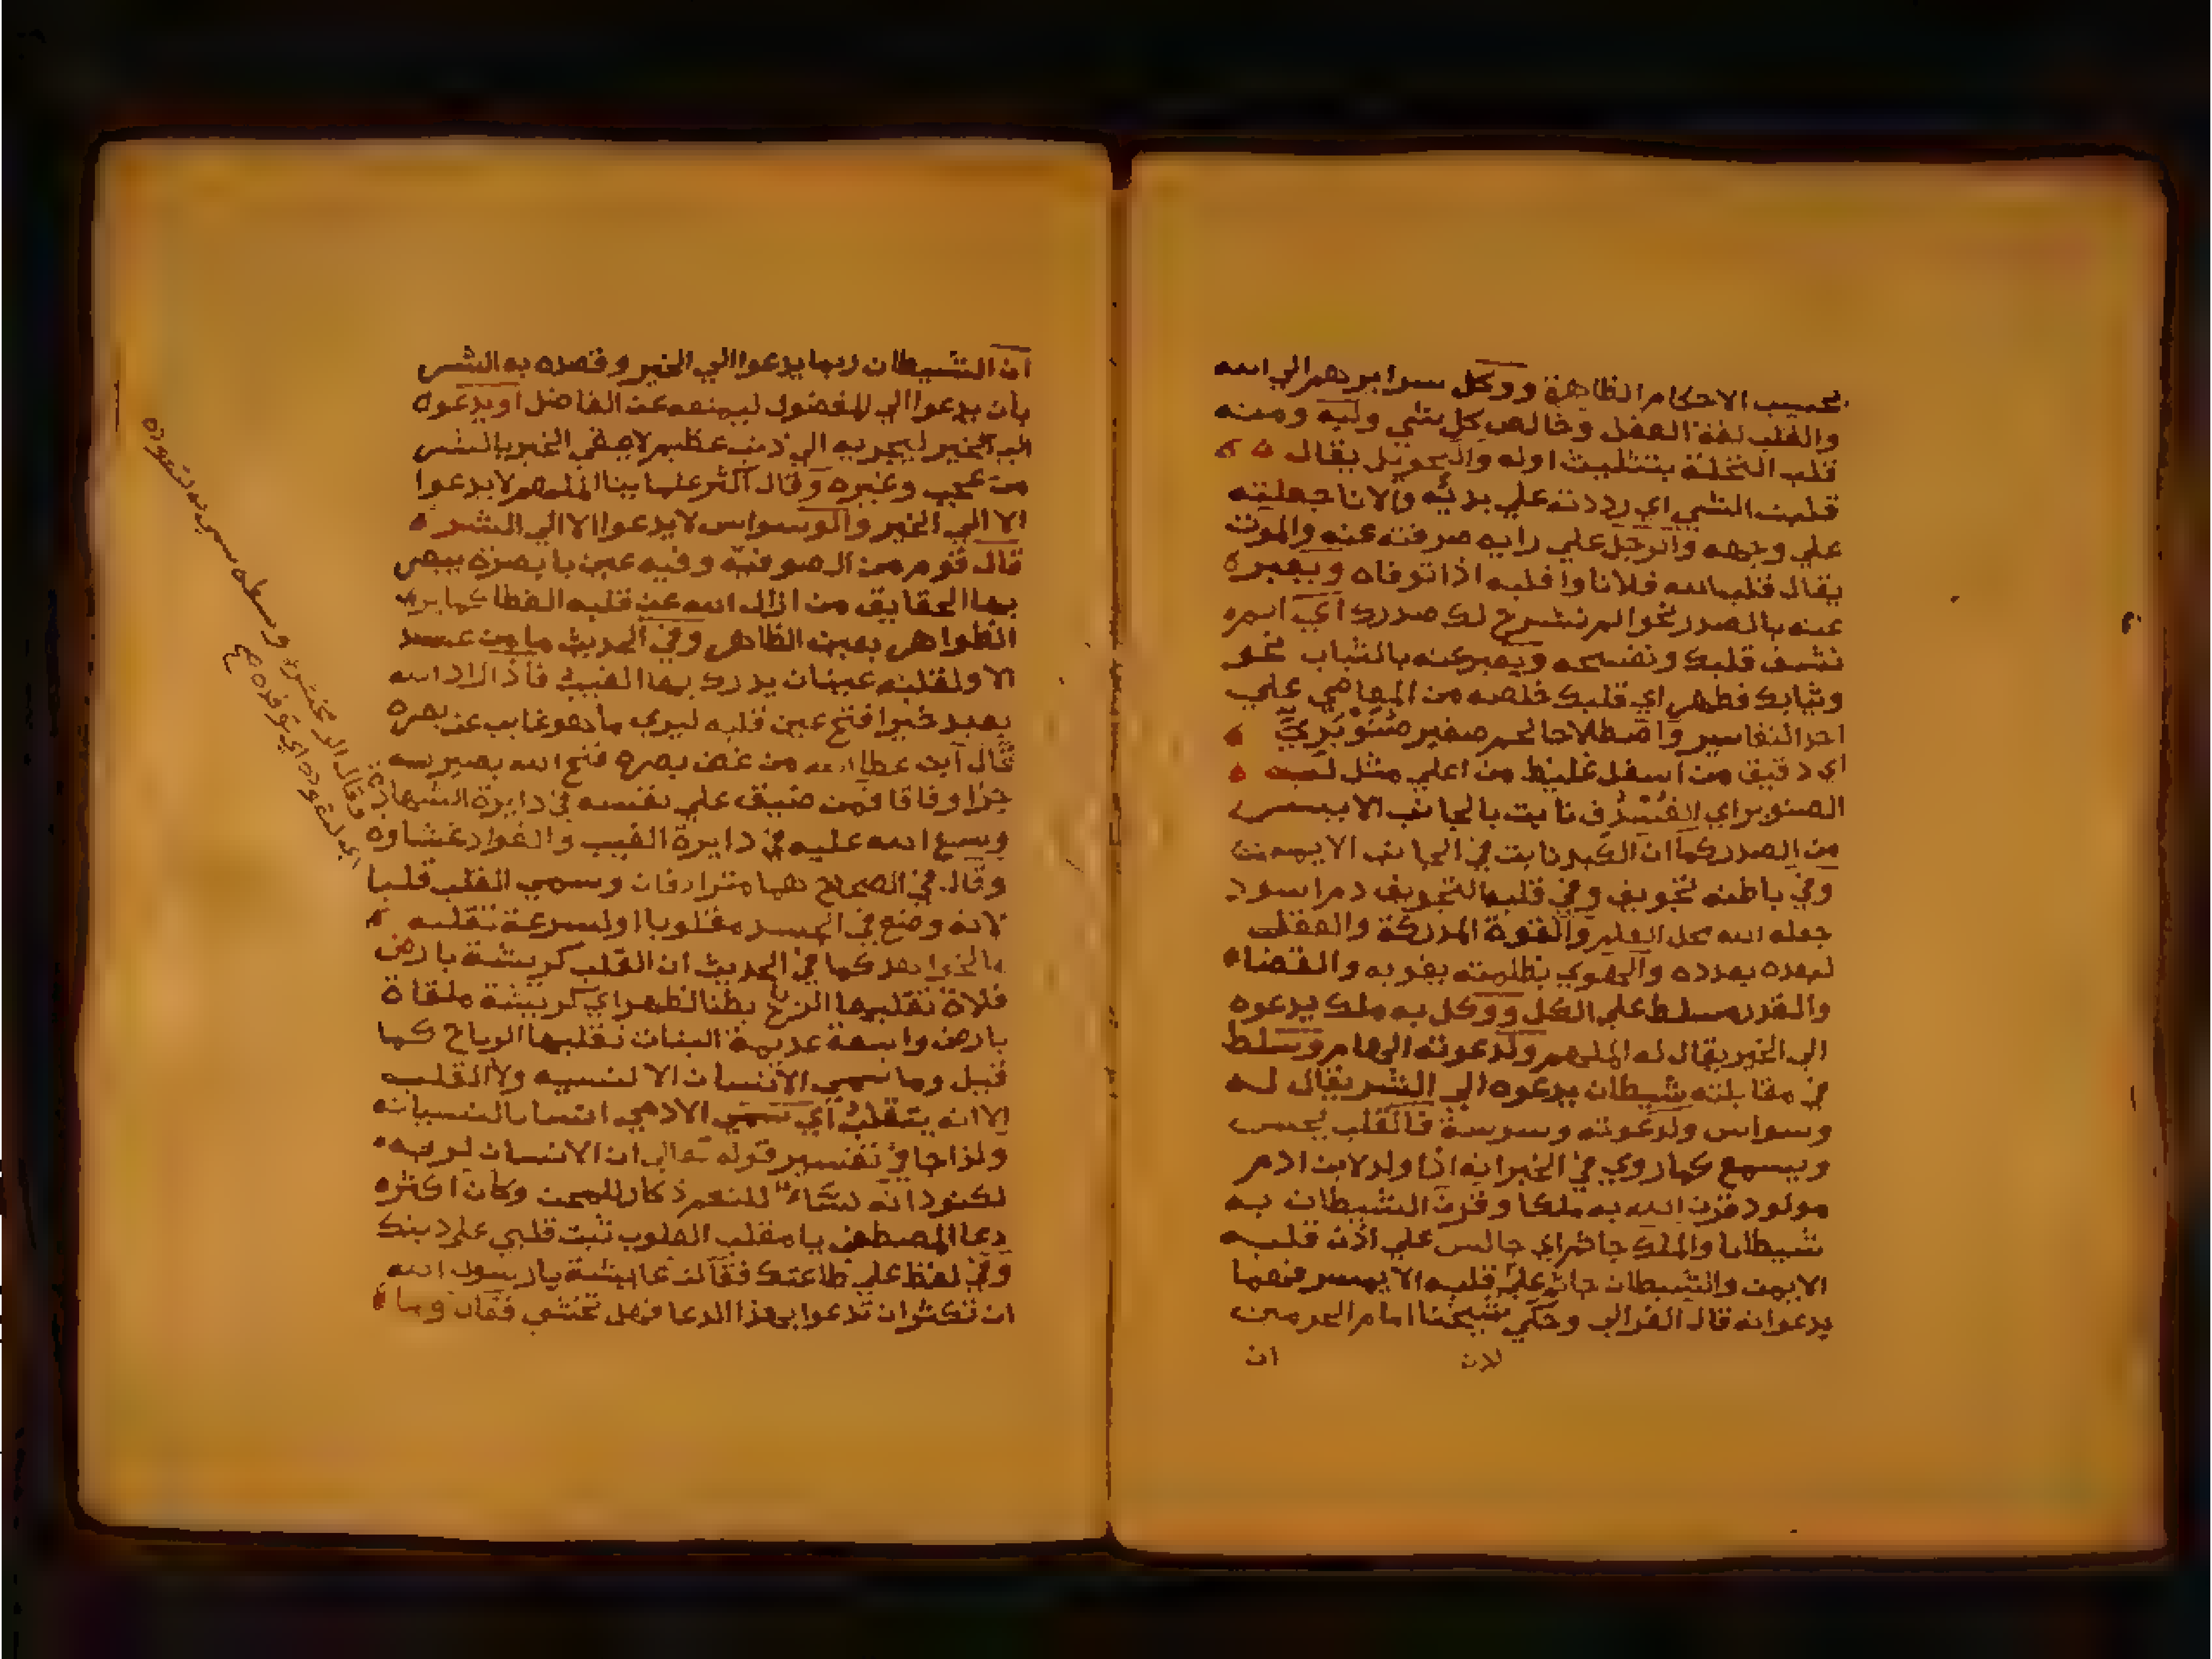 بحسب الاحكام الظاهرة ووكل سرايرهم الي الله
والقلب لغة العقل وخالص كل شي ولبه ومنه
قلب النخلة بتثليث اوله والتحويل يقال
قلبت الشي اي رددته علي بدئه والانا جعلته
علي وجهه والرجل علي رايه صرفته عنه والموت
يقال قلب الله فلانا واقلبه اذا توفاه ويعبره
عنه بالصدر نحو الم نشرح لك صدرك اي الم
نشف قلبك ونفسحه ويعبر عنه بالثياب نحو
وثيابك فطهر اي قلبك خلصه من المعاصي علي
احد التفاسير واصطلاحا لحم صغير صنوبري
اي دقيق من اسفل غليظ من اعلي مثل لبه
الصنوبر اي الفستق نابت بالجانب الايسر
من الصدر كما ان الكبد نابت في الجانب الايمن
وفي باطنه تجويف وفي قلب التجويف دم اسود
جعله الله محل العلم والقوة المدركة والعقل
لعهده بعدده والهوي بظلمته يغر به والقضاء
والقدر مسلط علي الكل ووكل به ملك يدعوه
الي الخير يقال له الملهم ولدعوته الهام وسلط
في مقابلته شيطان يدعوه الي الشر يقال له
وسواس ولدعوته وسوسة فالقلب يحس
ويسمع كما روي في الخبر انه اذا ولد لابن ادم
مولود قرن الله به ملكا وقرن الشيطان به
شيطانا والملك جاثم اي جالس علي اذن قلبه
الايمن والشيطان جاثم علي قلبه الايسر فهما
يدعوانه قال الغزالي وحكي شيخنا امام الحرمين
لان ان
ان الشيطان ربما يدعوا الي الخير وقصده به الشر
بان يدعوا الي المفضول ليمنعه عن الفاضل او يدعوه
الي الخير ليجر به الي ذنب عظيم لا يفي الخير بالشر
من عجب وغيره وقال اكثر علماينا الملهم لا يدعوا
الا الي الخير والوسواس لا يدعوا الا الي الشر
قال قوم من الصوفية وفيه عين باصرة يبصر
بها الحقايق من ازال الله عن قلبه الغطا كما يري
الظواهر بعين الظاهر وفي الحديث ما من عبد
الا ولقلبه عينان يدرك بهما الغيب فاذا اراد الله
بعبد خيرا فتح عين قلبه ليري ما هو غايب عن بصره
قال ابن عطا الله من غض بصره فتح الله بصيرته
جزا وفاقا فمن ضيق علي نفسه في دايرة الشهادة
وسع الله عليه في دايرة الغيب والفواد غشاوه
وقال في الصحاح هما مترادفان وسمي القلب قلبا
لانه وضع في الجسد مقلوبا او لسرعة تقلبه
بالخواطر كما في الحديث ان القلب كريشة بارض
فلاة تقلبها الريح بطنا لظهر اي كريشة ملقاة
بارض واسعة عديمة النبات تقلبها الرياح كما
قيل وما سمي الانسان الا لنسيه ولا القلب
الا انه يتقلب اي سمي الادمي انسانا لنسيانه
ولذا جا في تفسير قوله تعالي ان الانسان لربه
لكنود انه نساء للنعم ذكار للمحن وكان اكثر
دعا المصطفي يا مقلب القلوب ثبت قلبي علي دينك
وفي لفظ علي طاعتك فقالت عايشة يا رسول الله
ان تكثر ان تدعوا بهذا الدعا فهل تخشي فقال وما
وقال الزمخشري وسطه سمي به لتفوده
اي لتفوده اي توقده صح